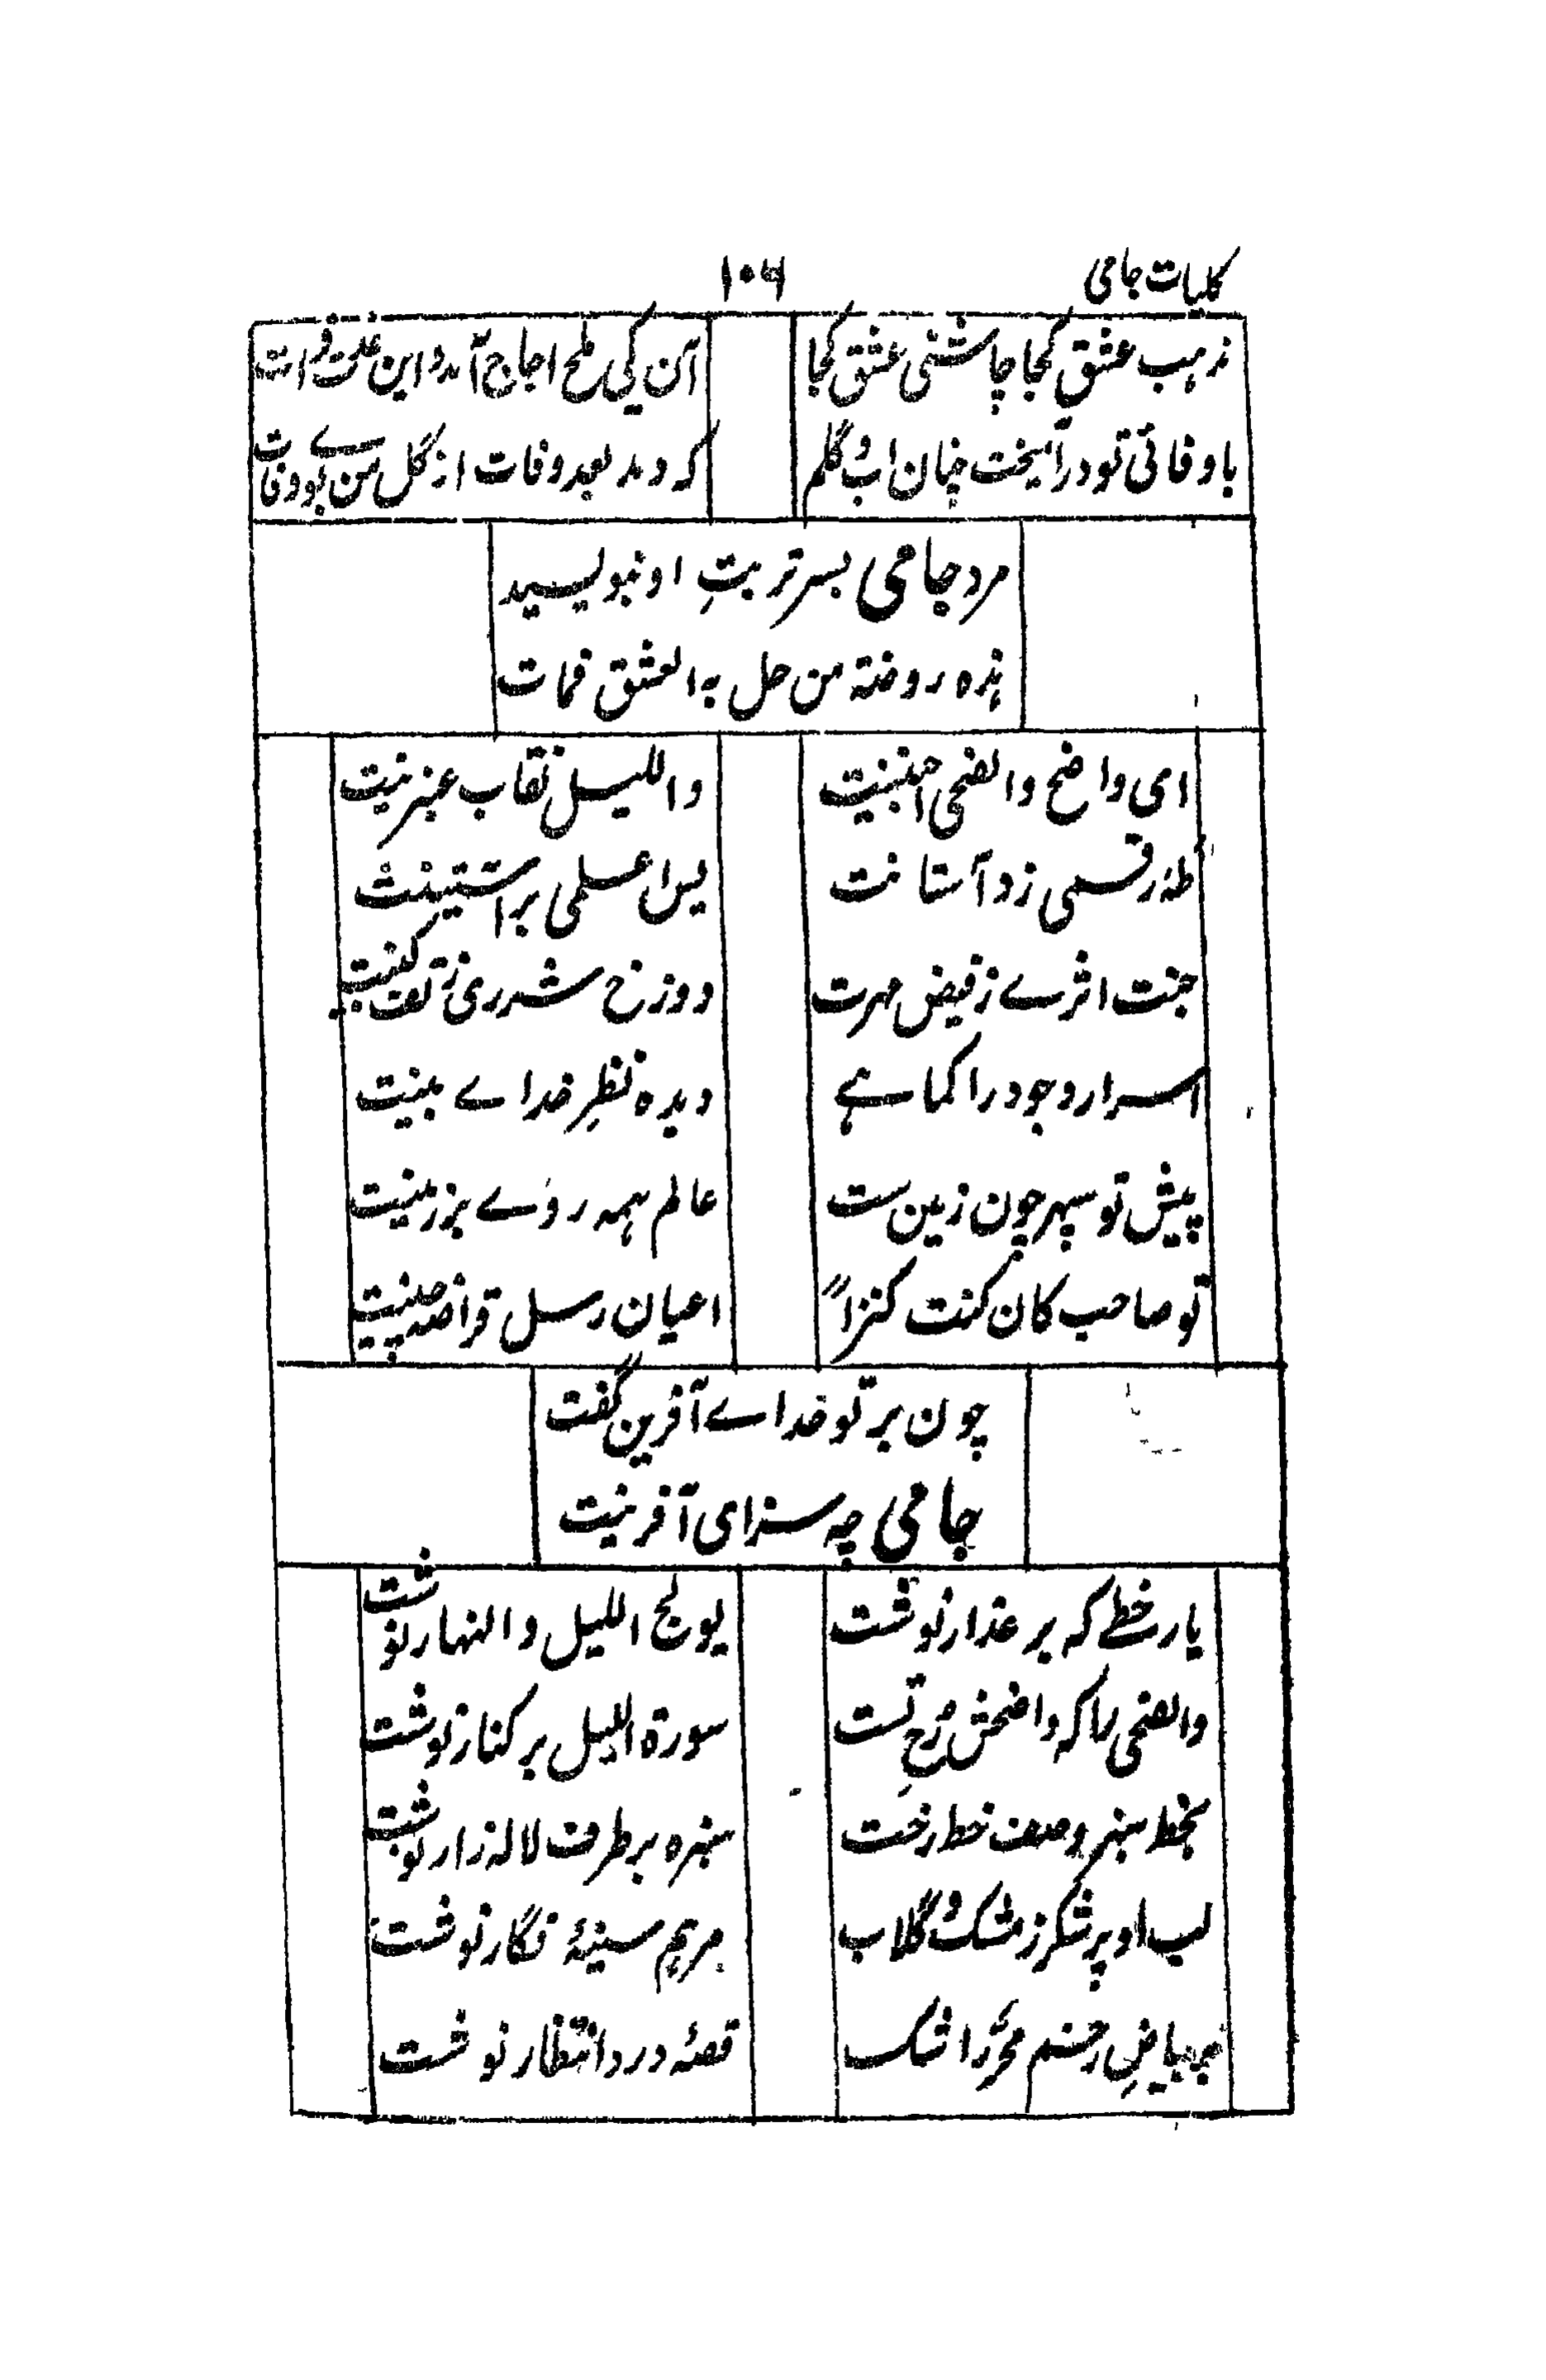 کلیات جامی
۱۰۶
مذہب عشق کجا چاشنی عشق کجا
آن یکی ملح اجاج آمد و این عذب فرات
با وفائی تو درآمیخت چنان آب و گلم
که دمد بعد وفات از گل من بوے وفات
مرد جامی بسر تربتِ او بنویسید
ہذہ روضۃ من حل بہ العشق فمات
ای واضح والضحی جبینیت
واللیل نقاب عنبرینیت
طہٰ رقمی ز دوآستانت
یس علمی بر آستینت
جنت اثرے ز فیض مہرت
دوزخ شرری ز تف کینت
اسرار وجود را کماہے
دیدہ نظرِ خداے بینیت
پیش تو سپہر چون زمین ست
عالم ہمہ روے بر زمینیت
تو صاحب کان کنت کنزاً
اعیان رسل قراضہ چینیت
چون بر تو خداے آفرین گفت
جامی چہ سزای آفرینیت
یار خطے کہ بر عذار نوشت
یولج اللیل والنہار نوشت
والضحی را کہ واضحش رخ تست
سورۃ اللیل بر کنار نوشت
بخط سبز وصف خط رخت
سبزہ بر طرف لالہ زار نوشت
لب او پر شکر ز مشک و گلاب
مرہم سینۂ فگار نوشت
بر بیاضِ رخم محرّر اشک
قصۂ درد انتظار نوشت